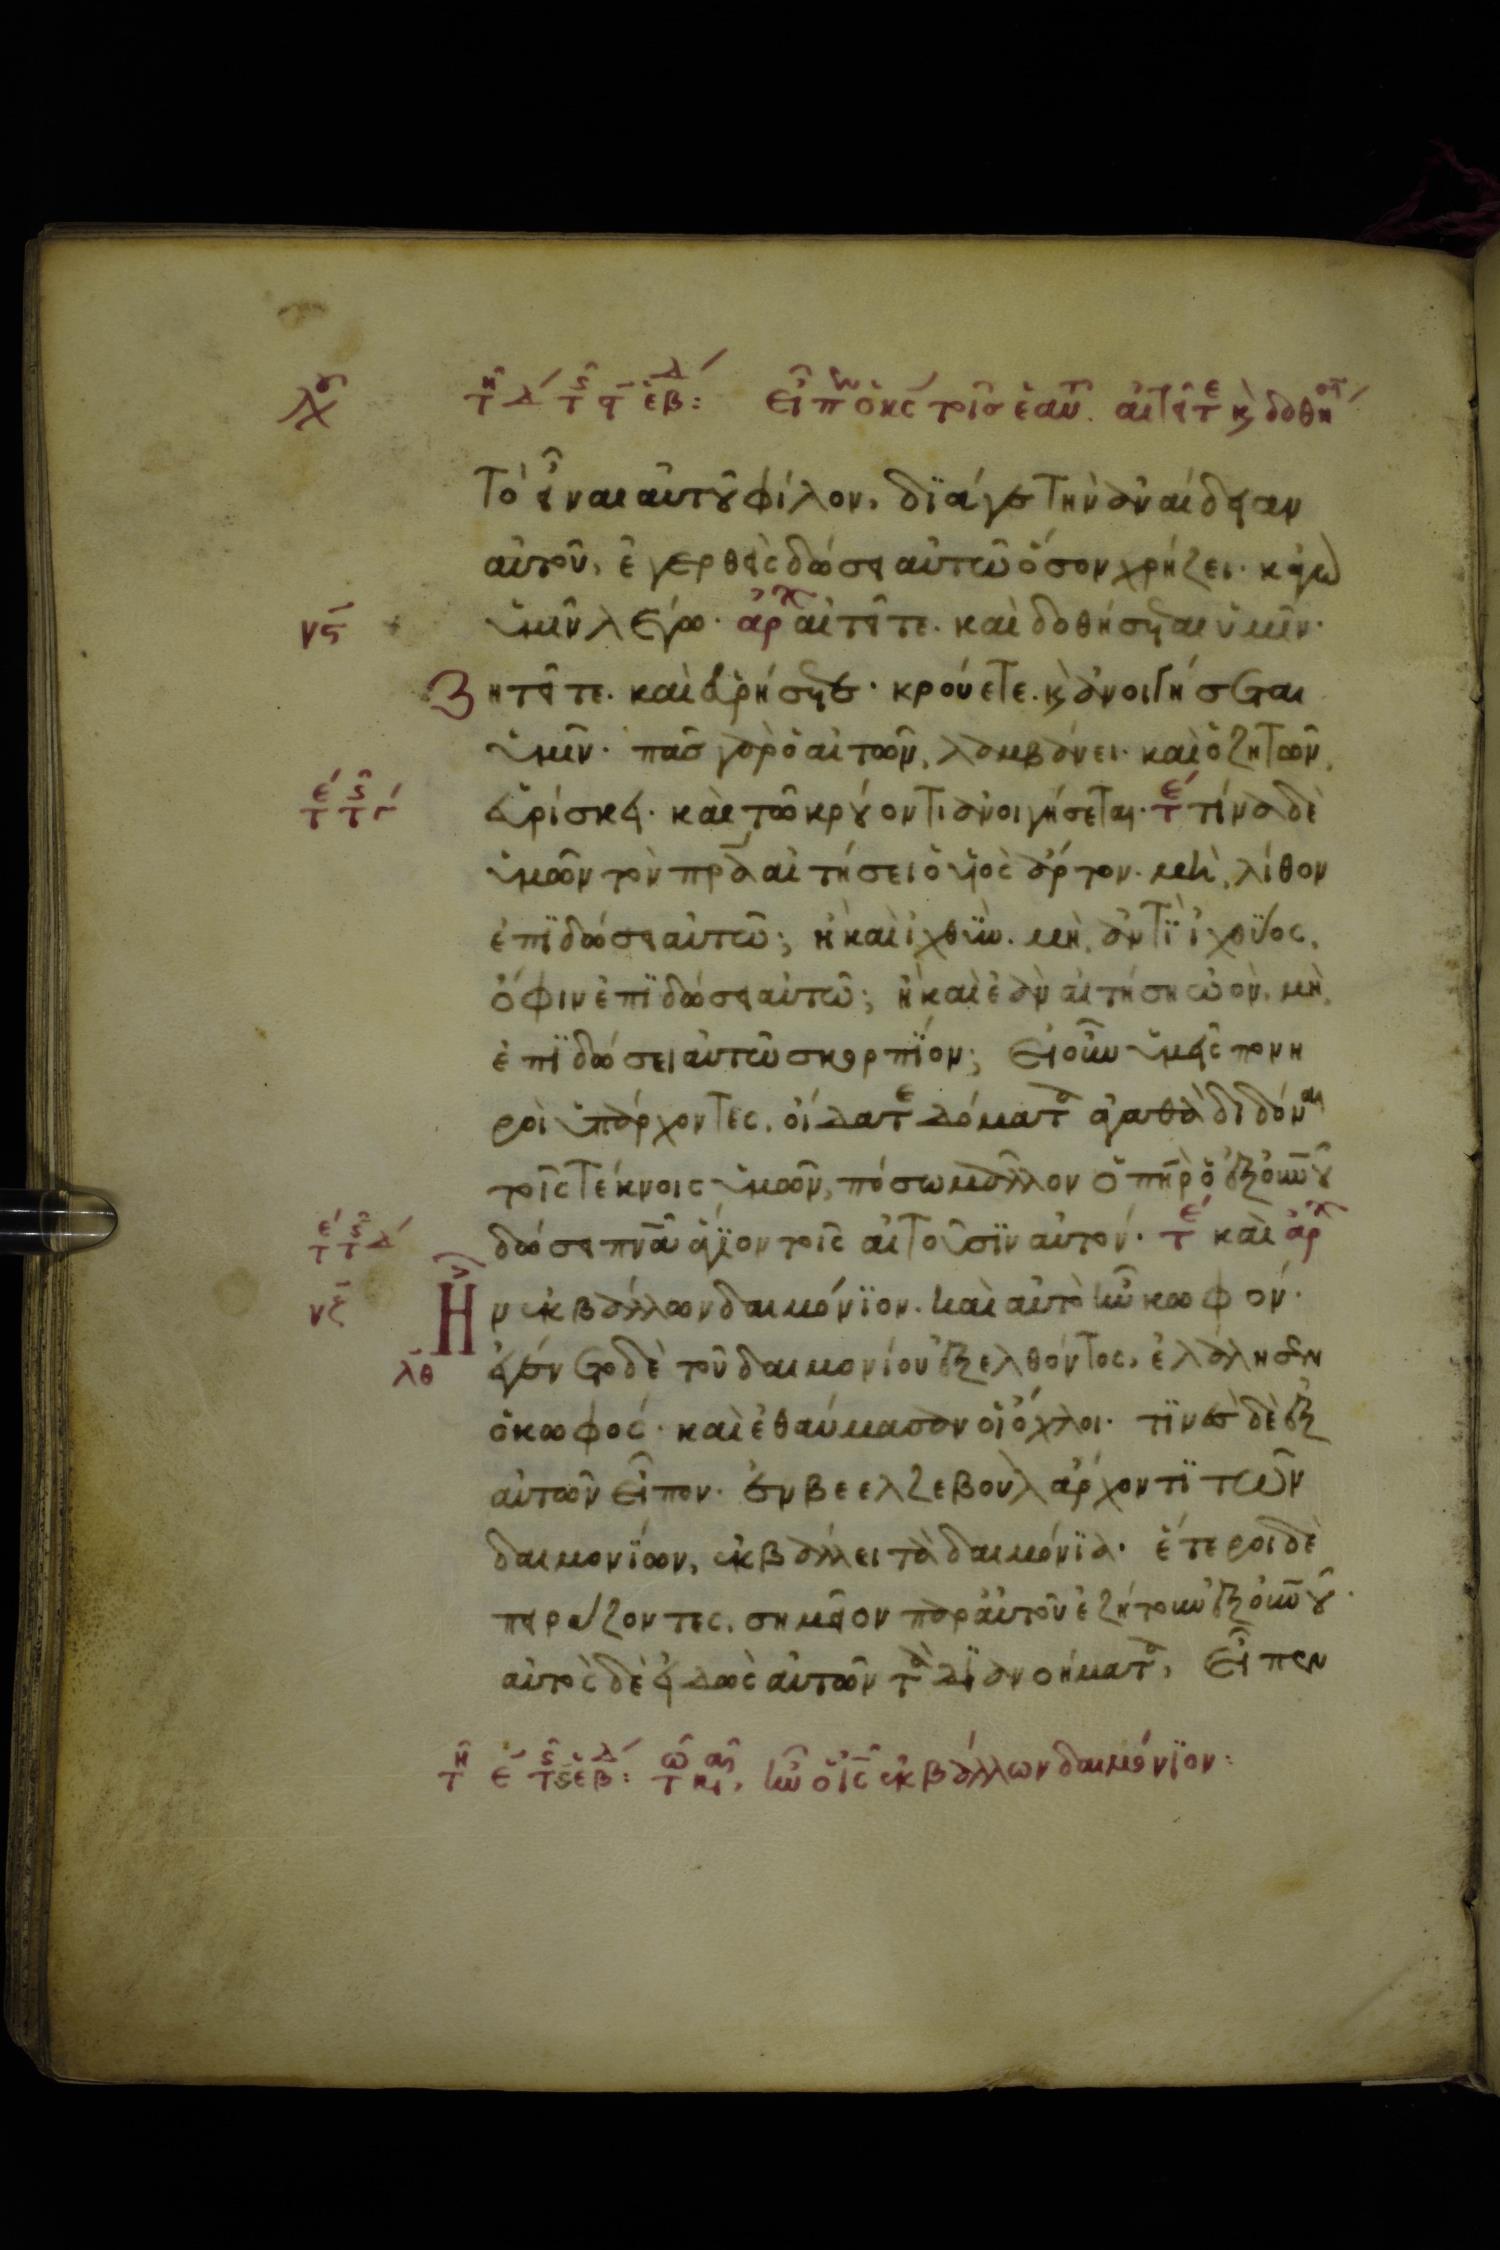 τῆ δ τ ϛ εβ: εἶπ ὁ κς τοῖσ ἑαυ. αἰτεῖτε κ δοθη
τὸ εἶναι αὐτοῦ φίλον, διάγε τὴν ἀναίδειαν
αὐτοῦ, ἐγερθεὶς δώσει αὐτῶ ὅσον χρήζει· κἀγὼ
νϛ ὑμῖν λέγω· ἀρχ αἰτεῖτε. καὶ δοθήσεται ὑμῖν·
Ζητεῖτε. καὶ εὑρήσετε· κρούετε. κ ἀνοιγήσεται
ὑμῖν· πᾶσ γὰρ ὁ αἰτῶν, λαμβάνει· καὶ ὁ ζητῶν,
εὑρίσκει· καὶ τῶ κρούοντι ἀνοιγήσεται· τε τίνα δὲ
ὑμῶν τὸν πρα αἰτήσει ὁ υἱὸς ἄρτον· μὴ, λίθον
ἐπϊδώσει αὐτῶ; ἢ καὶ ἰχθϋν. μὴ, ἀντϊ ἰχθϋος,
ὄφιν ἐπϊδώσει αὐτῶ; ἢ καὶ ἐὰν αἰτήση ὠὸν, μὴ,
ἐπϊδώσει αὐτῶ σκορπΐον; Εἰ οὖν ὑμεῖς πονη
ροὶ ὑπάρχοντες, οἴδατε δόματα ἀγαθὰ διδόναι
τοῖς τέκνοις ὑμῶν, πόσω μᾶλλον ὁ πηρ ὁ ἐξ οὐνοῦ
δώσει πνα ἅγϊον τοῖς αἰτοῦσϊν αὐτόν· τε καὶ ἀρχ
νζ Ἦν ἐκβάλλων δαιμόνϊον. καὶ αὐτὸ ἦν κωφόν·
λθ ἐγένετο δὲ τοῦ δαιμονίου ἐξελθόντος, ἐλάλησεν
ὁ κωφός· καὶ ἐθαύμασαν οἱ ὄχλοι· τϊνὲς δὲ ἐξ
αὐτῶν εἶπον· ἐν βεελζεβοὺλ ἄρχοντϊ τῶν
δαιμονΐων, ἐκβάλλει τὰ δαιμόνϊα· ἕτεροι δὲ
πειράζοντες, σημεῖον παρ αὐτοῦ ἐζήτουν ἐξ οὐνοῦ·
αὐτὸς δὲ εἰδὼς αὐτῶν τὰ δϊανοήματα, Εἶπεν
τῆ ε τ ϛ εβ: τῶ και, ἦν ὁ ις ἐκβάλλων δαιμόνϊον: